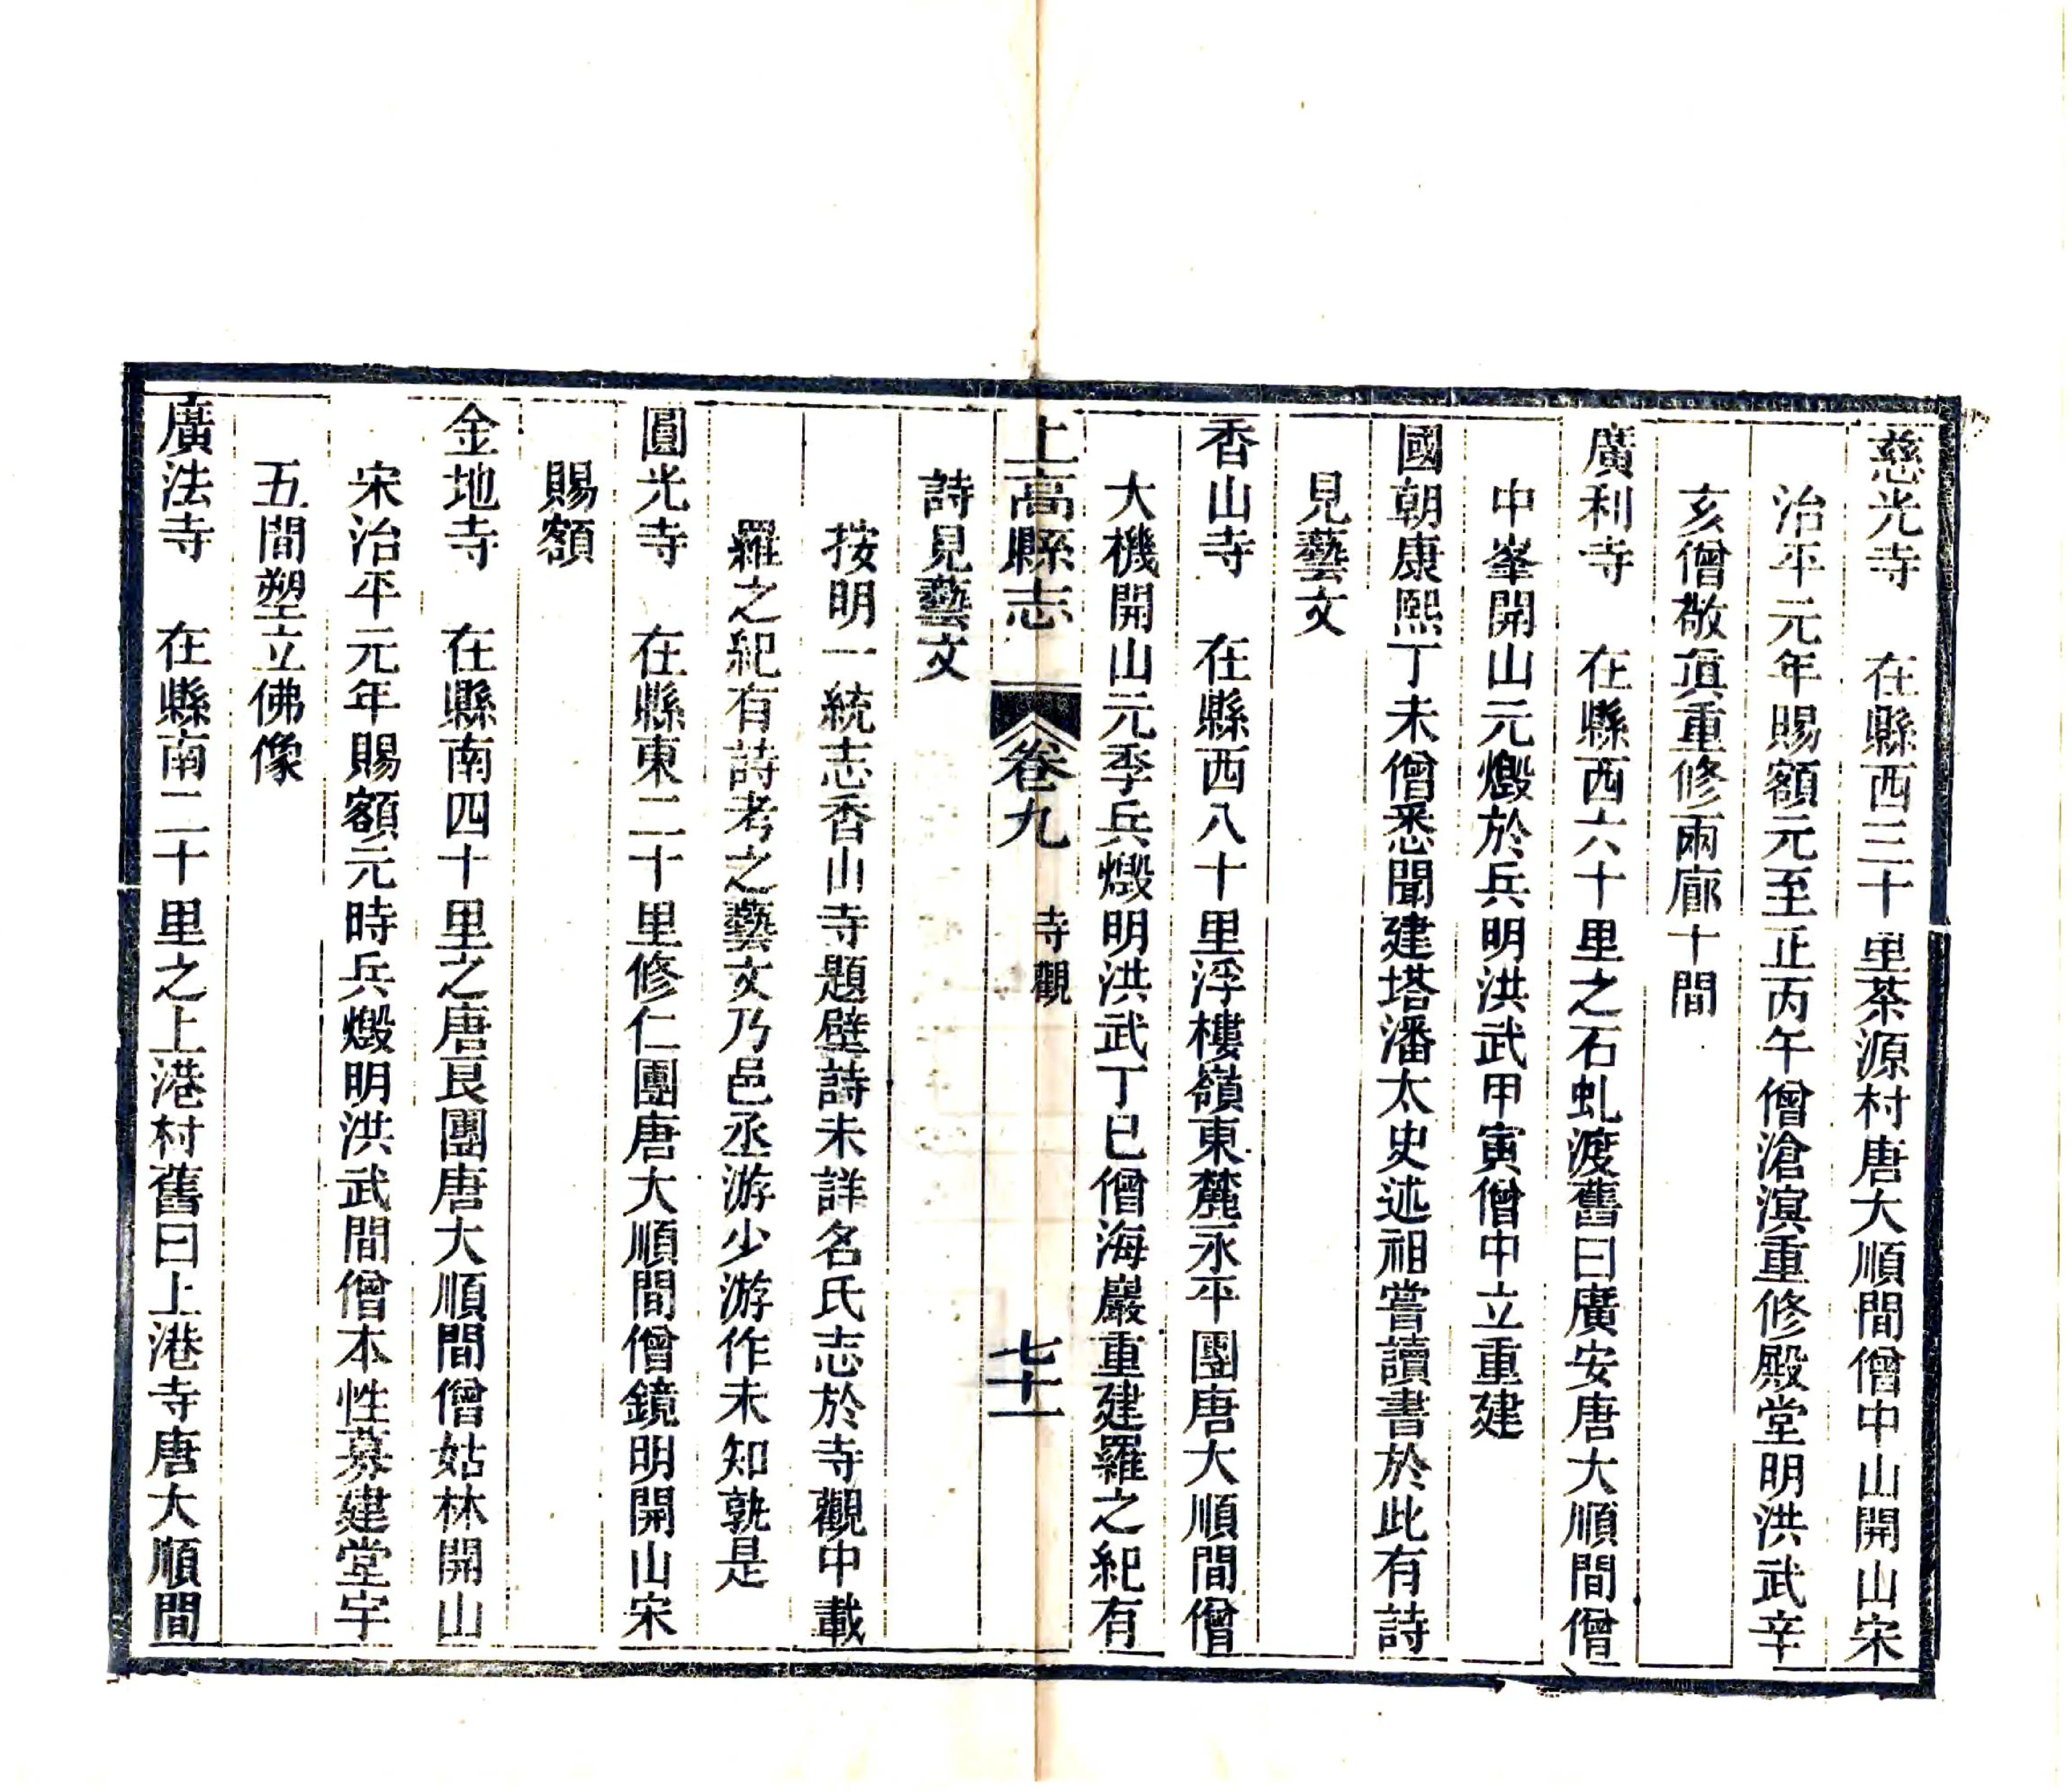 慈光寺　在縣西三十里茶源村唐大順間僧中山開山宋
治平元年賜額元至正丙午僧滄溟重修殿堂明洪武辛
亥僧敬眞重修兩廊十間
廣利寺　在縣西六十里之石虬渡舊曰廣安唐大順間僧
中峯開山元燬於兵明洪武甲寅僧中立重建
國朝康熙丁未僧悉聞建塔潘太史述祖嘗讀書於此有詩
見藝文
香山寺　在縣西八十里浮樓嶺東麓永平團唐大順間僧
大機開山元季兵燬明洪武丁巳僧海巖重建羅之紀有
上高縣志　卷九　寺觀　七十一
詩見藝文
按明一統志香山寺題壁詩未詳名氏志於寺觀中載
羅之紀有詩考之藝文乃邑丞游少游作未知孰是
圓光寺　在縣東二十里修仁團唐大順間僧鏡明開山宋
賜額
金地寺　在縣南四十里之唐艮團唐大順間僧姑林開山
宋治平元年賜額元時兵燬明洪武間僧本性募建堂宇
五間塑立佛像
廣法寺　在縣南二十里之上港村舊曰上港寺唐大順間